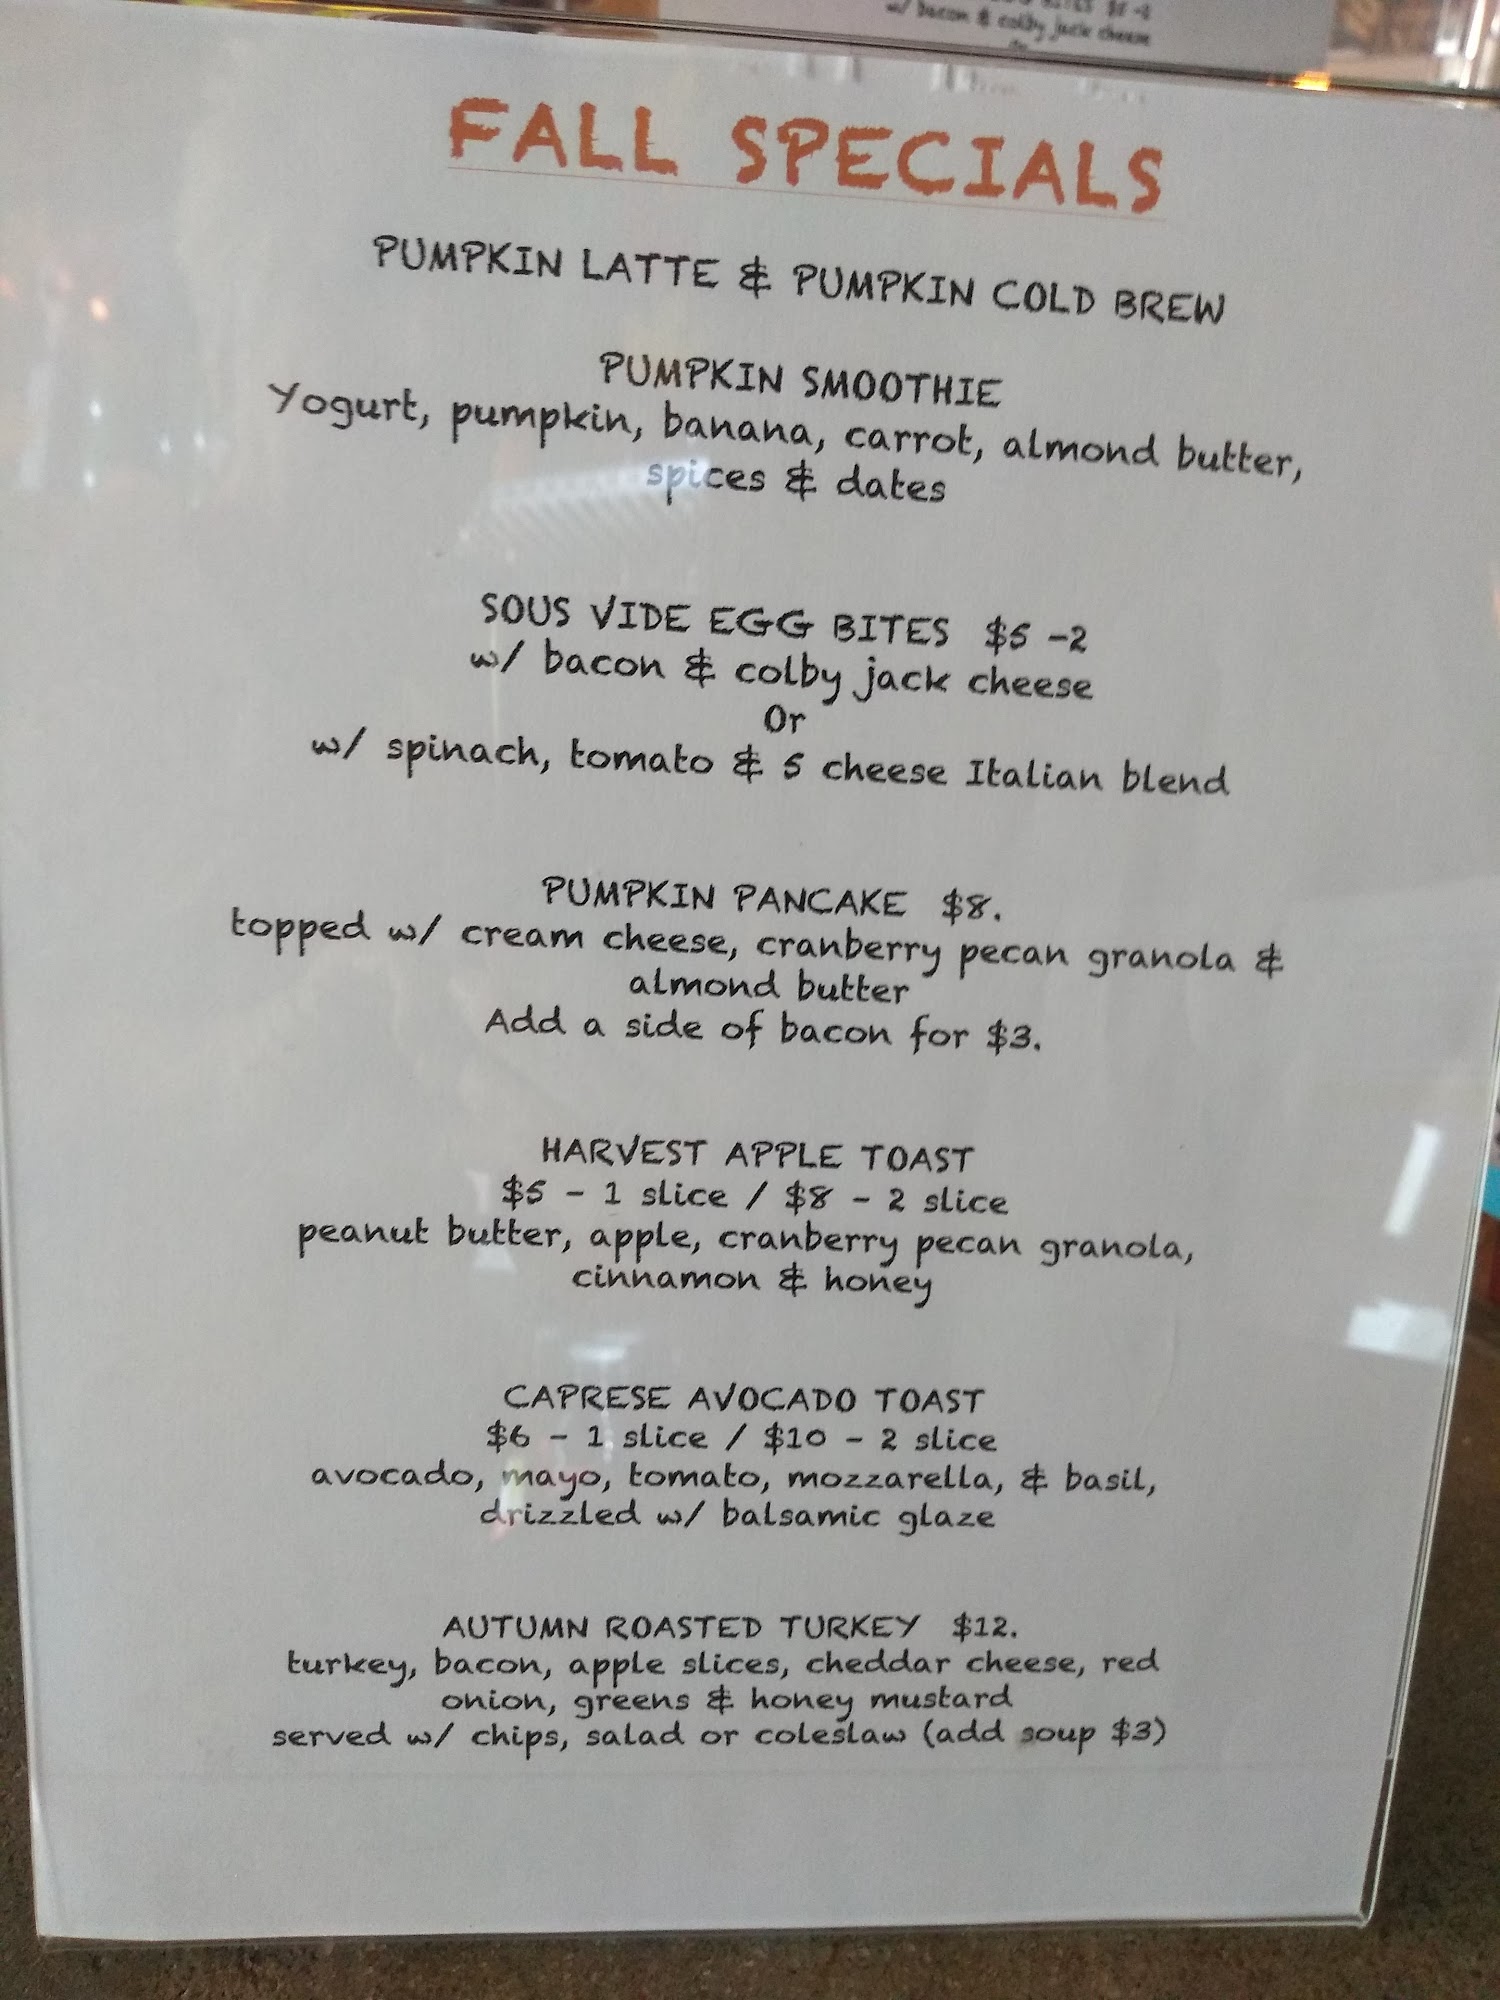 w/ bacon & colby jack cheese
FALL SPECIALS
PUMPKIN LATTE & PUMPKIN COLD BREW
PUMPKIN SMOOTHIE
Yogurt, pumpkin, banana, carrot, almond butter,
spices & dates
SOUS VIDE EGG BITES $5 -2
w/ bacon & colby jack cheese
Or
w/ spinach, tomato & 5 cheese Italian blend
PUMPKIN PANCAKE $8.
topped w/ cream cheese, cranberry pecan granola &
almond butter
Add a side of bacon for $3.
HARVEST APPLE TOAST
$5 - 1 slice / $8 - 2 slice
peanut butter, apple, cranberry pecan granola,
cinnamon & honey
CAPRESE AVOCADO TOAST
$6 - 1 slice / $10 - 2 slice
avocado, mayo, tomato, mozzarella, & basil,
drizzled w/ balsamic glaze
AUTUMN ROASTED TURKEY $12.
turkey, bacon, apple slices, cheddar cheese, red
onion, greens & honey mustard
served w/ chips, salad or coleslaw (add soup $3)